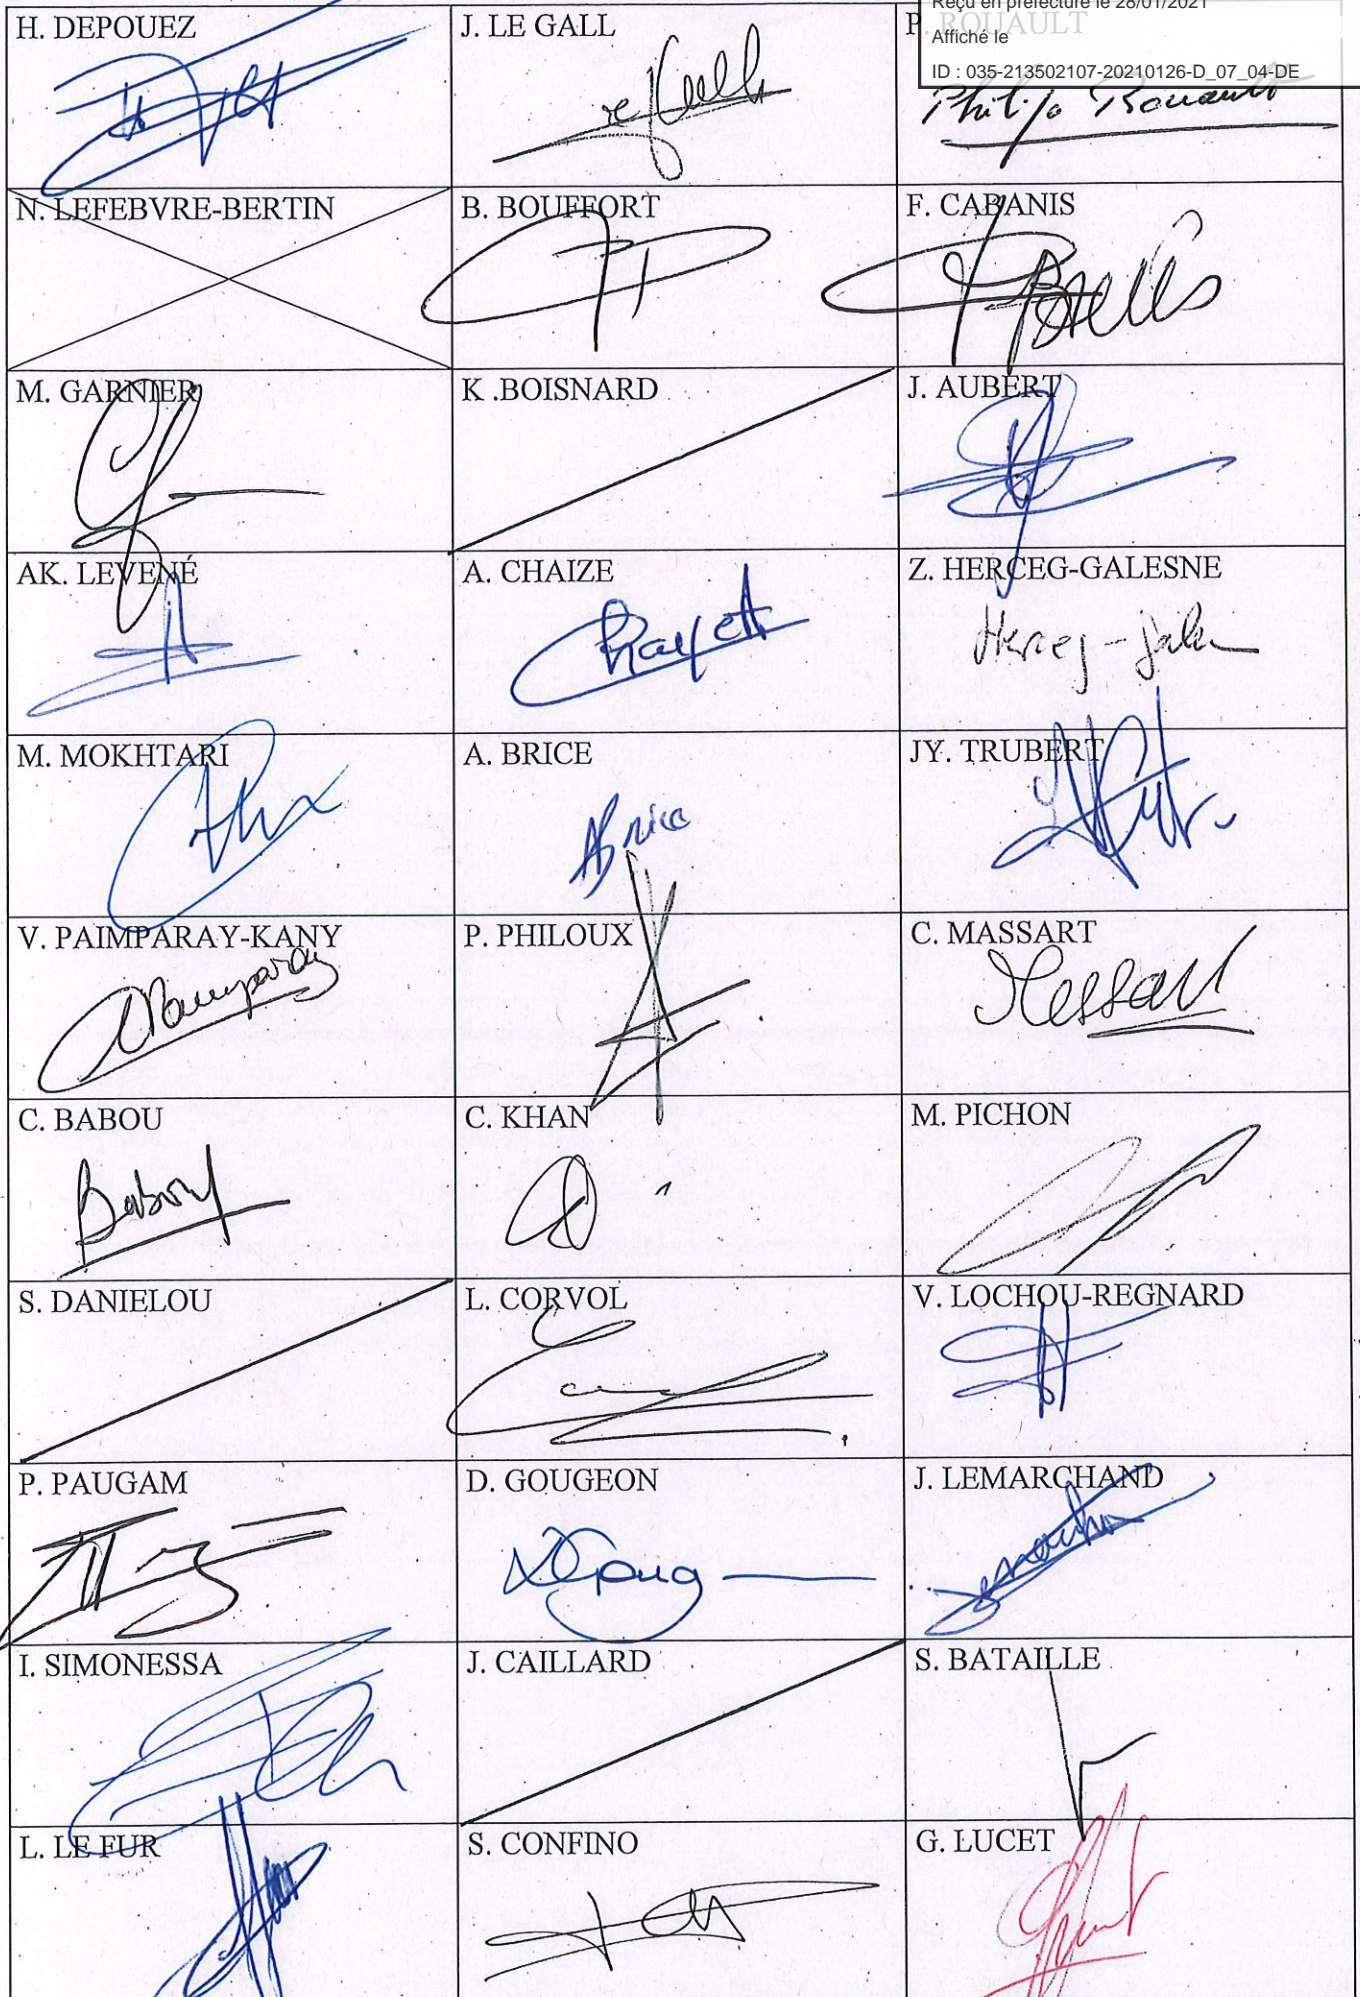 Reçu en préfecture le 28/01/2021
Affiché le
ID : 035-213502107-20210126-D_07_04-DE
H. DEPOUEZ
J. LE GALL
P. ROUAULT
Philipe Rouault
N. LEFEBVRE-BERTIN
B. BOUFFORT
F. CABANIS
M. GARNIER
K .BOISNARD
J. AUBERT
AK. LEVENÉ
A. CHAIZE
Z. HERCEG-GALESNE
Herceg-Gale
M. MOKHTARI
A. BRICE
ABrice
JY. TRUBERT
V. PAIMPARAY-KANY
P. PHILOUX
C. MASSART
Massart
C. BABOU
Babou
C. KHAN
M. PICHON
S. DANIELOU
L. CORVOL
V. LOCHOU-REGNARD
P. PAUGAM
D. GOUGEON
DGoug
J. LEMARCHAND
I. SIMONESSA
J. CAILLARD
S. BATAILLE
L. LE FUR
S. CONFINO
G. LUCET